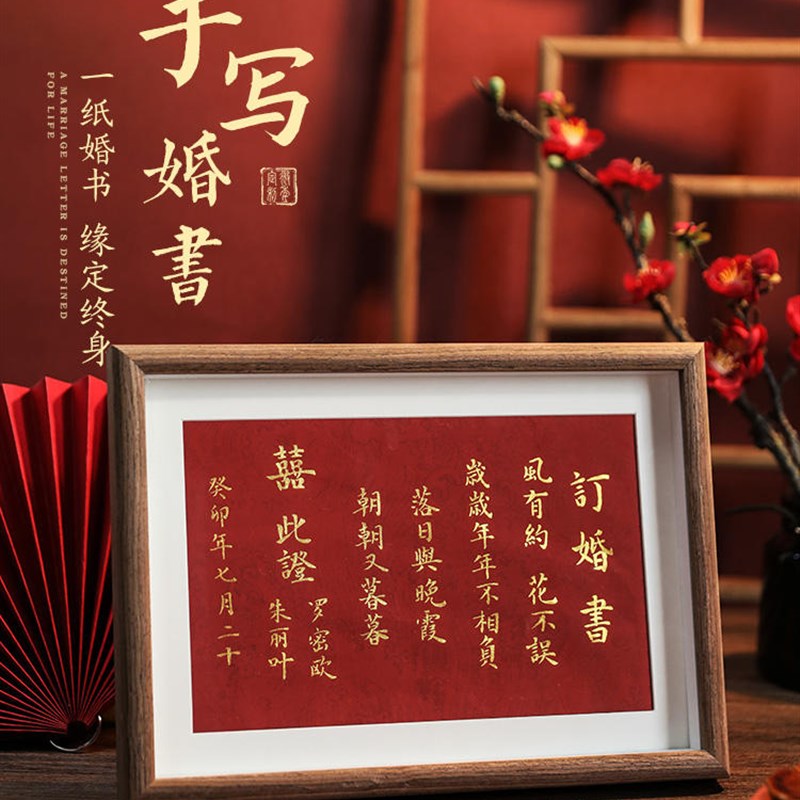 手写
婚書
一纸婚书 缘定终身
A MARRIAGE LETTER IS DESTINED
FOR LIFE
訂婚書
風有約 花不誤
歲歲年年不相負
落日與晚霞
朝朝又暮暮
囍 此證
罗密欧
朱丽叶
癸卯年七月二十